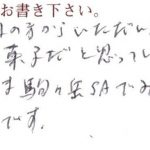 お書き下さい。
の方からいただい
菓子だと思ってい
ま駒ヶ岳SAでみ
です。